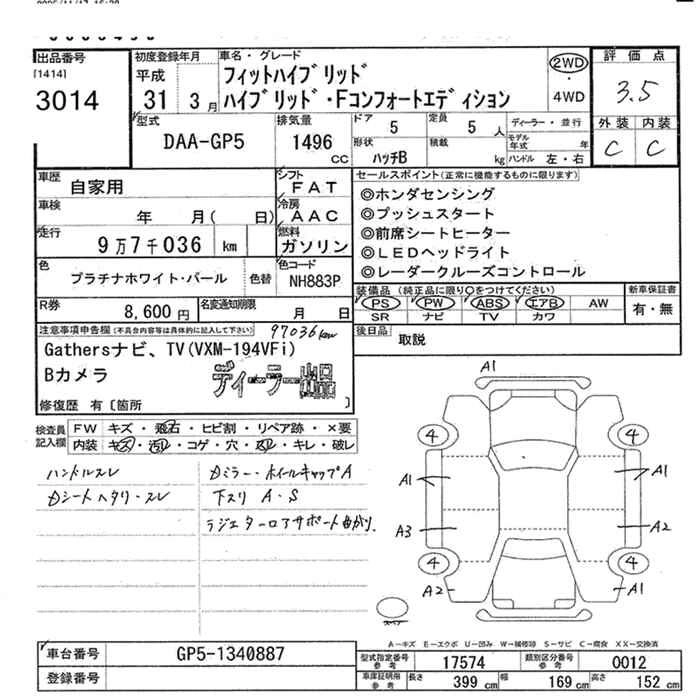 出品番号
[1414]
3014
初度登録年月
平成
31 3月
車名・グレード
フィットハイブリッド
ハイブリッド・Fコンフォートエディション
2WD
・
4WD
評価点
3.5
型式
DAA-GP5
排気量
1496
cc
ドア
5
定員
5人
形状
ハッチB
積載
kg
ディーラー・並行
モデル年式 年
ハンドル 左・右
外装 内装
C C
車歴
自家用
車検
年 月( 日)
走行
9万7千036 km
シフト
FAT
冷房
AAC
燃料
ガソリン
セールスポイント(正常に機能するものに限ります)
◎ホンダセンシング
◎プッシュスタート
◎前席シートヒーター
◎LEDヘッドライト
◎レーダークルーズコントロール
色
プラチナホワイト・パール
色替
色コード
NH883P
装備品(純正品に限り○をつけてください)
PS PW ABS エアB AW
SR ナビ TV カワ
新車保証書
有・無
R券
8,600円
名変通知期限
月 日
後日品
取説
注意事項申告欄(不具合内容等は具体的に記入して下さい)
97036km
Gathersナビ、TV(VXM-194VFi)
Bカメラ
ディーラー出品
修復歴 有〔箇所 〕
検査員記入欄
FW キズ・飛石・ヒビ割・リペア跡・×要
内装 キズ・汚レ・コゲ・穴・スレ・キレ・破レ
ハンドルスレ
Dシートヘタリ・スレ
Dミラー・ホイールキャップA
下スリ A・S
ラジエターロアサポート曲がり.
A1
4 4
A1 A1
A3 A2
4 4
A2 A1
スペア
A-キズ E-エクボ U-凹み W-補修跡 S-サビ C-腐食 XX-交換済
車台番号
GP5-1340887
登録番号
型式指定番号 参考
17574
類別区分番号 参考
0012
車庫証明用 参考
長さ 399 cm 幅 169 cm 高さ 152 cm